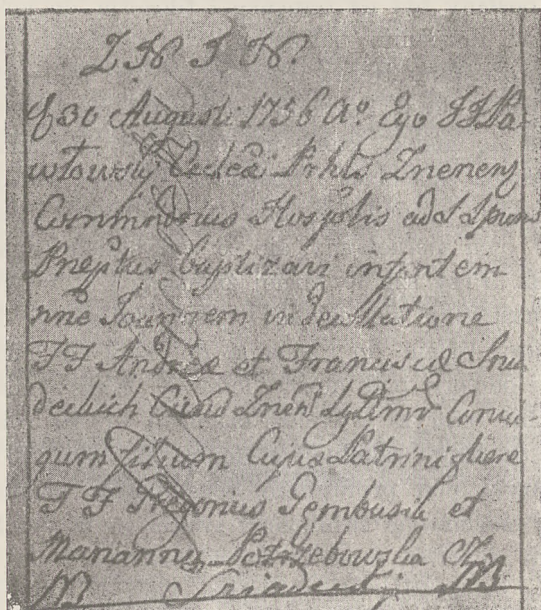 Z N I N.
d 30 Augusti 1756 Aº Ego F F Pa-
włowsky Ecclae Prhls Znenens
Comendarius Hosplis ad S
Pneptus baptizavi infantem
nne Joannem in
F F Andreæ et Francisca Snia
deckich Civiu Znen Lgtimr Coniu-
gum filium Cujus Patrini fuere
F F Gregorius Gembusia et
Marianna Potrzebowska CZ
NB Sniadecki NB